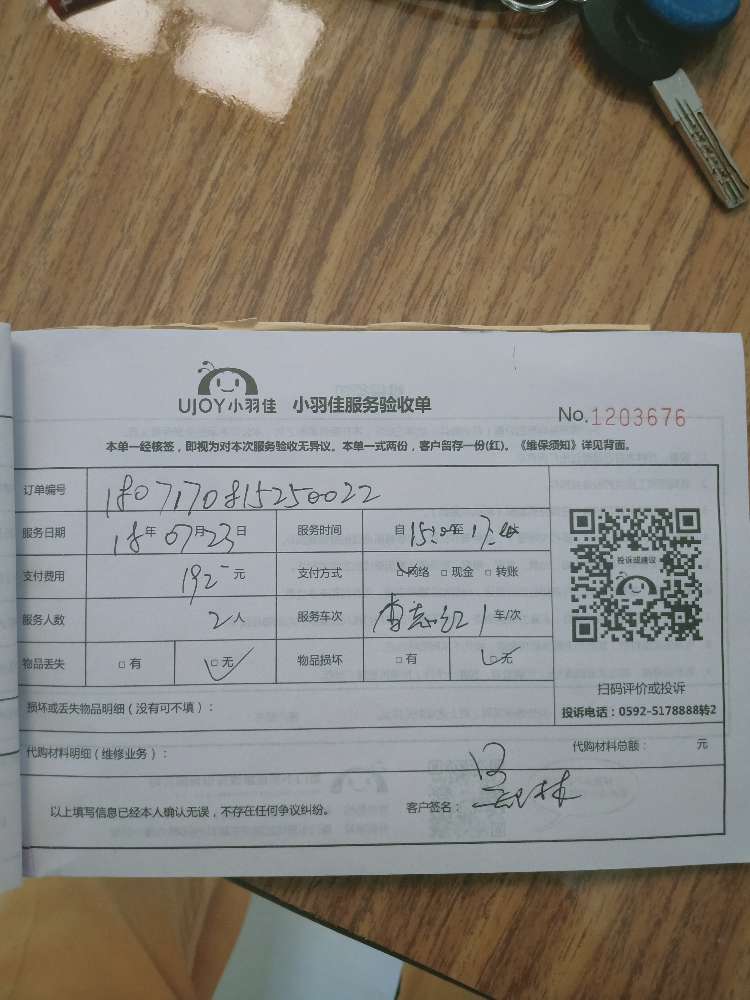 UJOY小羽佳 小羽佳服务验收单
No.1203676
本单一经核签，即视为对本次服务验收无异议。本单一式两份，客户留存一份(红)。《维保须知》详见背面。
订单编号 1807170815250022
服务日期 18年07月23日 服务时间 自15:00至17:00
支付费用 192元 支付方式 □网络 □现金 □转账
服务人数 2人 服务车次 1车/次
物品丢失 □有 □无 物品损坏 □有 □无
投诉或建议
扫码评价或投诉
投诉电话：0592-5178888转2
损坏或丢失物品明细（没有可不填）：
代购材料明细（维修业务）： 代购材料总额： 元
以上填写信息已经本人确认无误，不存在任何争议纠纷。 客户签名：